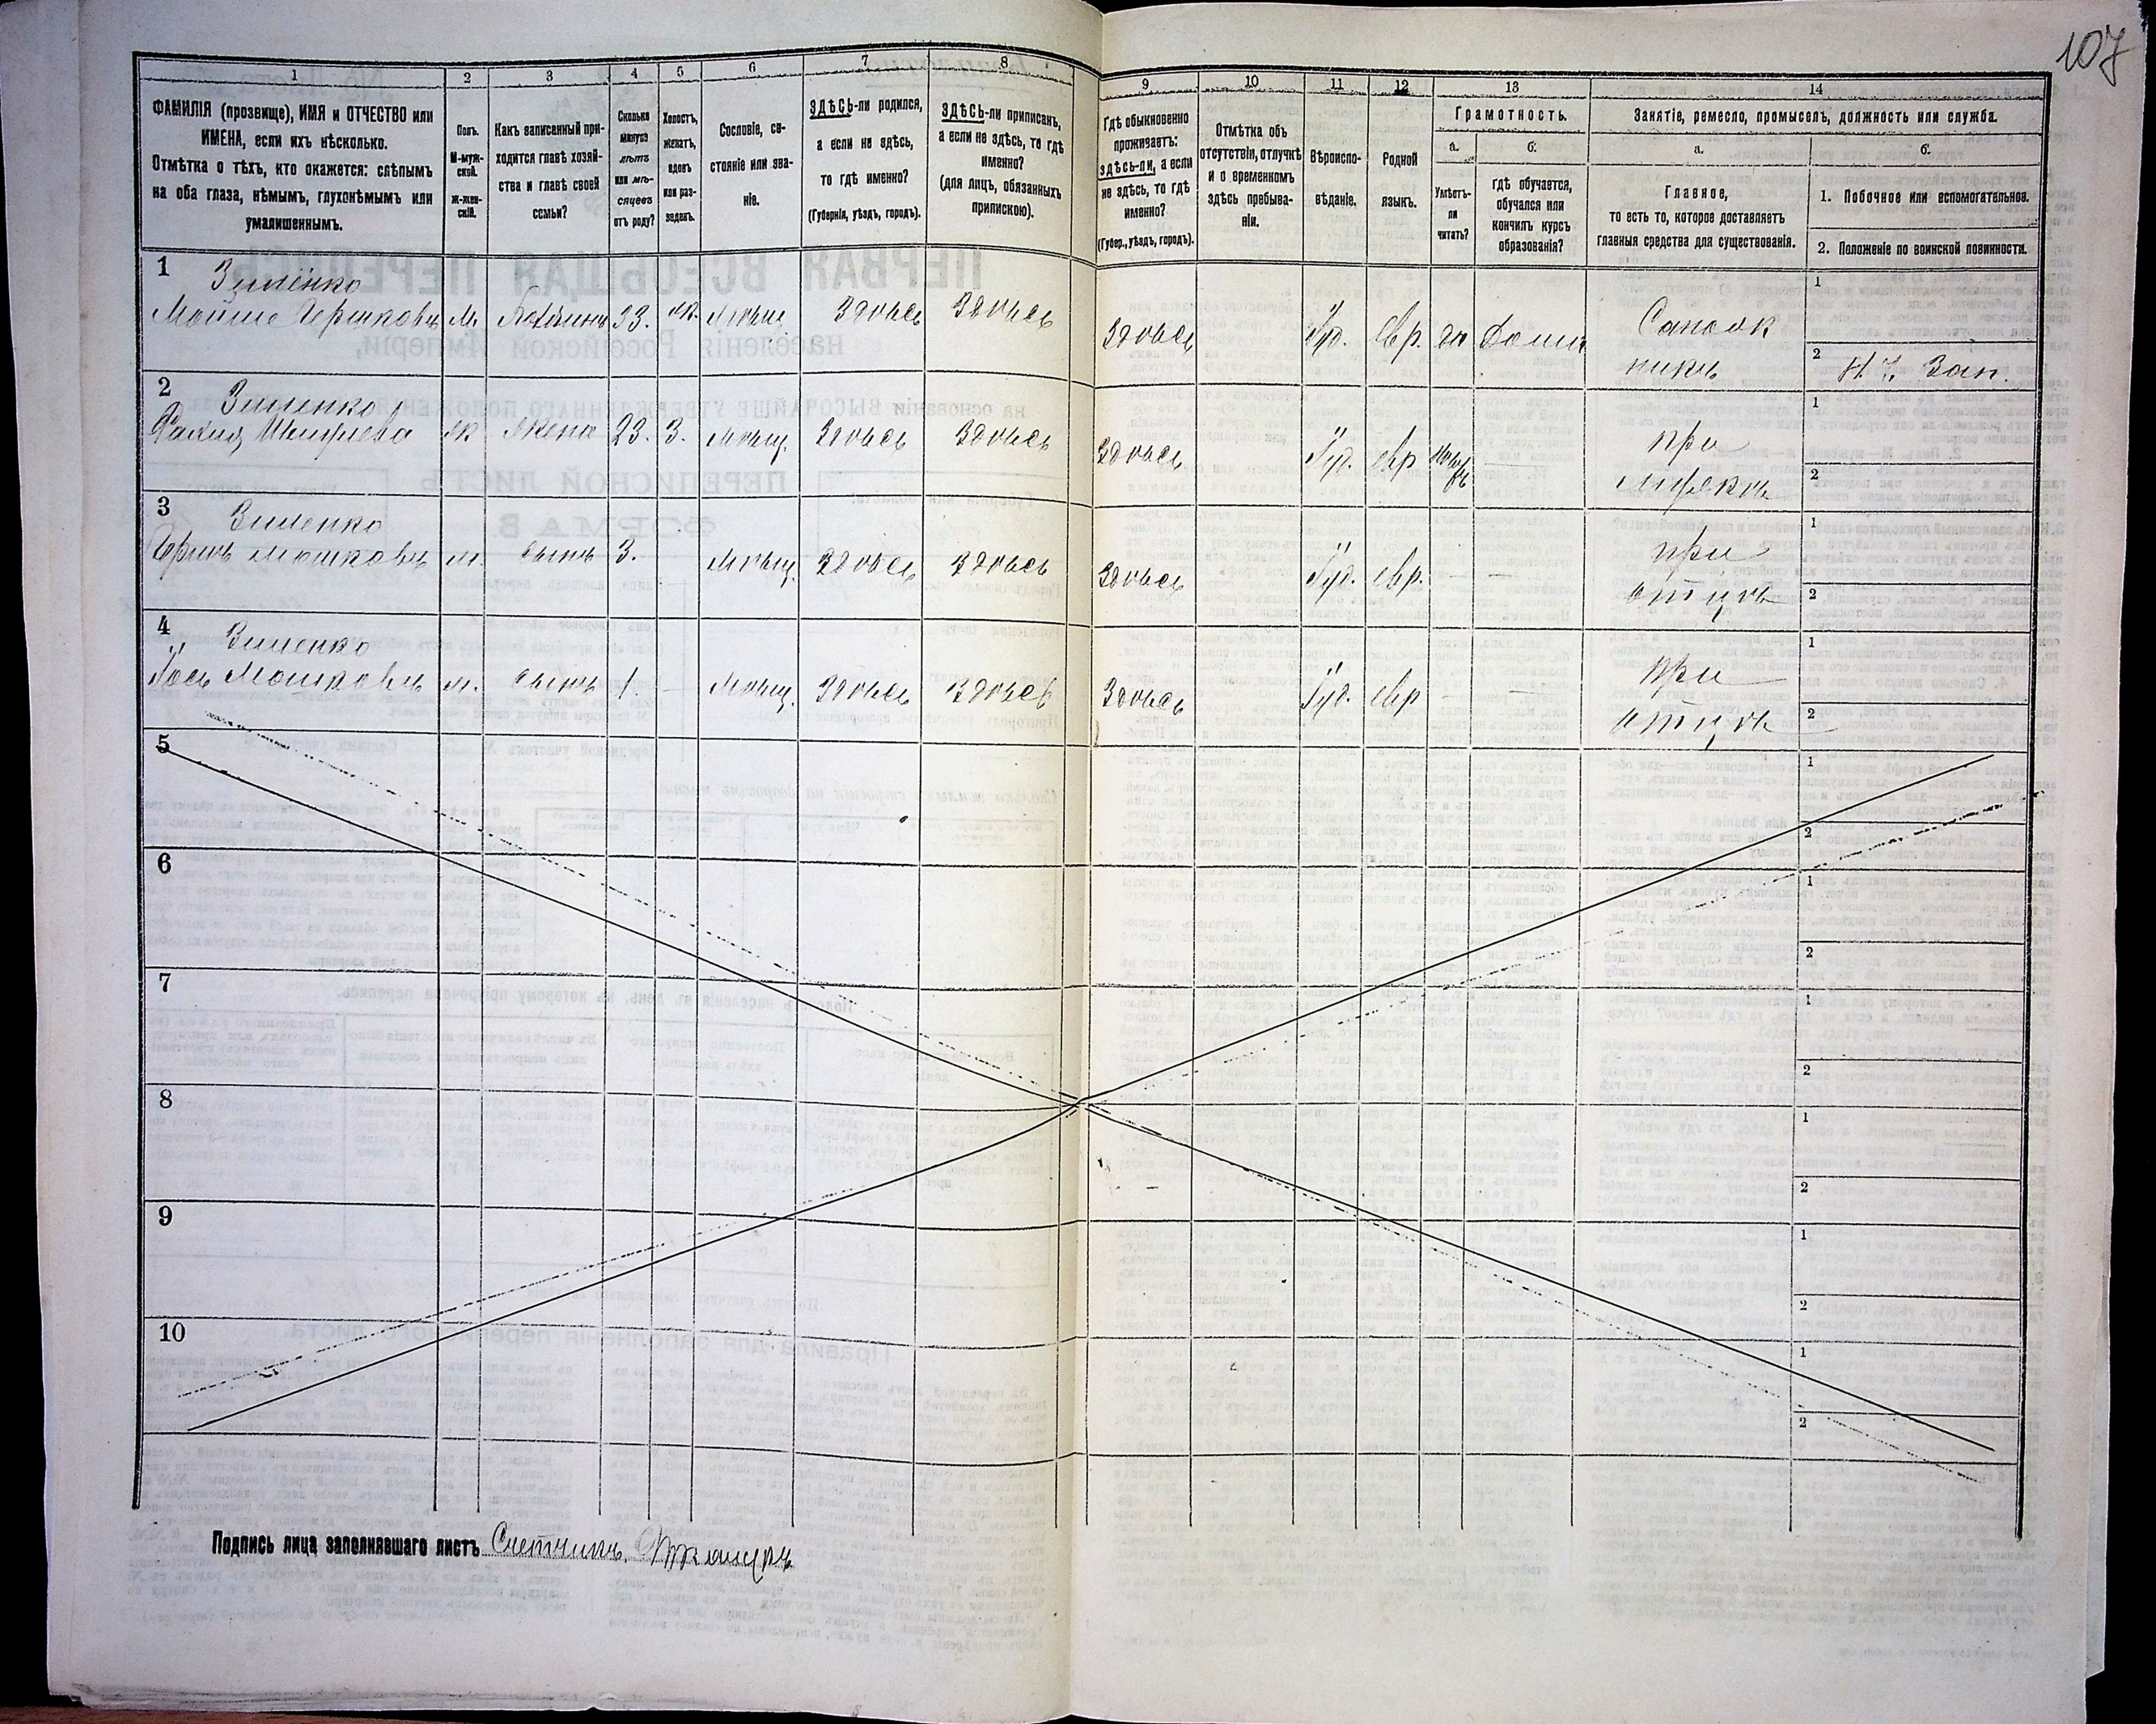 107
1 2 3 4 5 6 7 8 9 10 11 12 13 14
ФАМИЛІЯ (прозвище), ИМЯ и ОТЧЕСТВО или
ИМЕНА, если ихъ нѣсколько.
Отмѣтка о тѣхъ, кто окажется: слѣпымъ
на оба глаза, нѣмымъ, глухонѣмымъ или
умалишеннымъ.
Полъ.
М-муж-
ской.
Ж-жен-
скій.
Какъ записанный при-
ходится главѣ хозяй-
ства и главѣ своей
семьи?
Сколько
минуло
лѣтъ
или мѣ-
сяцевъ
отъ роду?
Холостъ,
женатъ,
вдовъ
или раз-
веденъ.
Сословіе, со-
стояніе или зва-
ніе.
ЗДѢСЬ-ли родился,
а если не здѣсь,
то гдѣ именно?
(Губернія, уѣздъ, городъ).
ЗДѢСЬ-ли приписанъ,
а если не здѣсь, то гдѣ
именно?
(для лицъ, обязанныхъ
припискою).
Гдѣ обыкновенно
проживаетъ:
здѣсь-ли, а если
не здѣсь, то гдѣ
именно?
(Губер., уѣздъ, городъ).
Отмѣтка объ
отсутствіи, отлучкѣ
и о временномъ
здѣсь пребыва-
ніи.
Вѣроиспо-
вѣданіе.
Родной
языкъ.
Грамотность.
а.
Умѣетъ-
ли
читать?
б.
гдѣ обучается,
обучался или
кончилъ курсъ
образованія?
Занятіе, ремесло, промыселъ, должность или служба.
а.
Главное,
то есть то, которое доставляетъ
главныя средства для существованія.
б.
1. Побочное или вспомогательное.
2. Положеніе по воинской повинности.
1
Зименко
м. 23. ж. мѣщ. Здѣсь Здѣсь Здѣсь Іуд. евр. да
1
2
2
Зименко
ж жена 23. З. мѣщ. Здѣсь Здѣсь Здѣсь Іуд. евр —
при
мужѣ
1
2
3
Зименко
Гершъ Мошковъ м. сынъ 3. мѣщ. Здѣсь Здѣсь Здѣсь Іуд. евр. — —
при
отцѣ
1
2
4
Зименко
Іось Мошковъ м. сынъ 1. — мѣщ. Здѣсь Здѣсь Здѣсь Іуд. евр — —
при
отцѣ
1
2
5
1
2
6
1
2
7
1
2
8
1
2
9
1
2
10
1
2
Подпись лица заполнявшаго листъ Счетчикъ